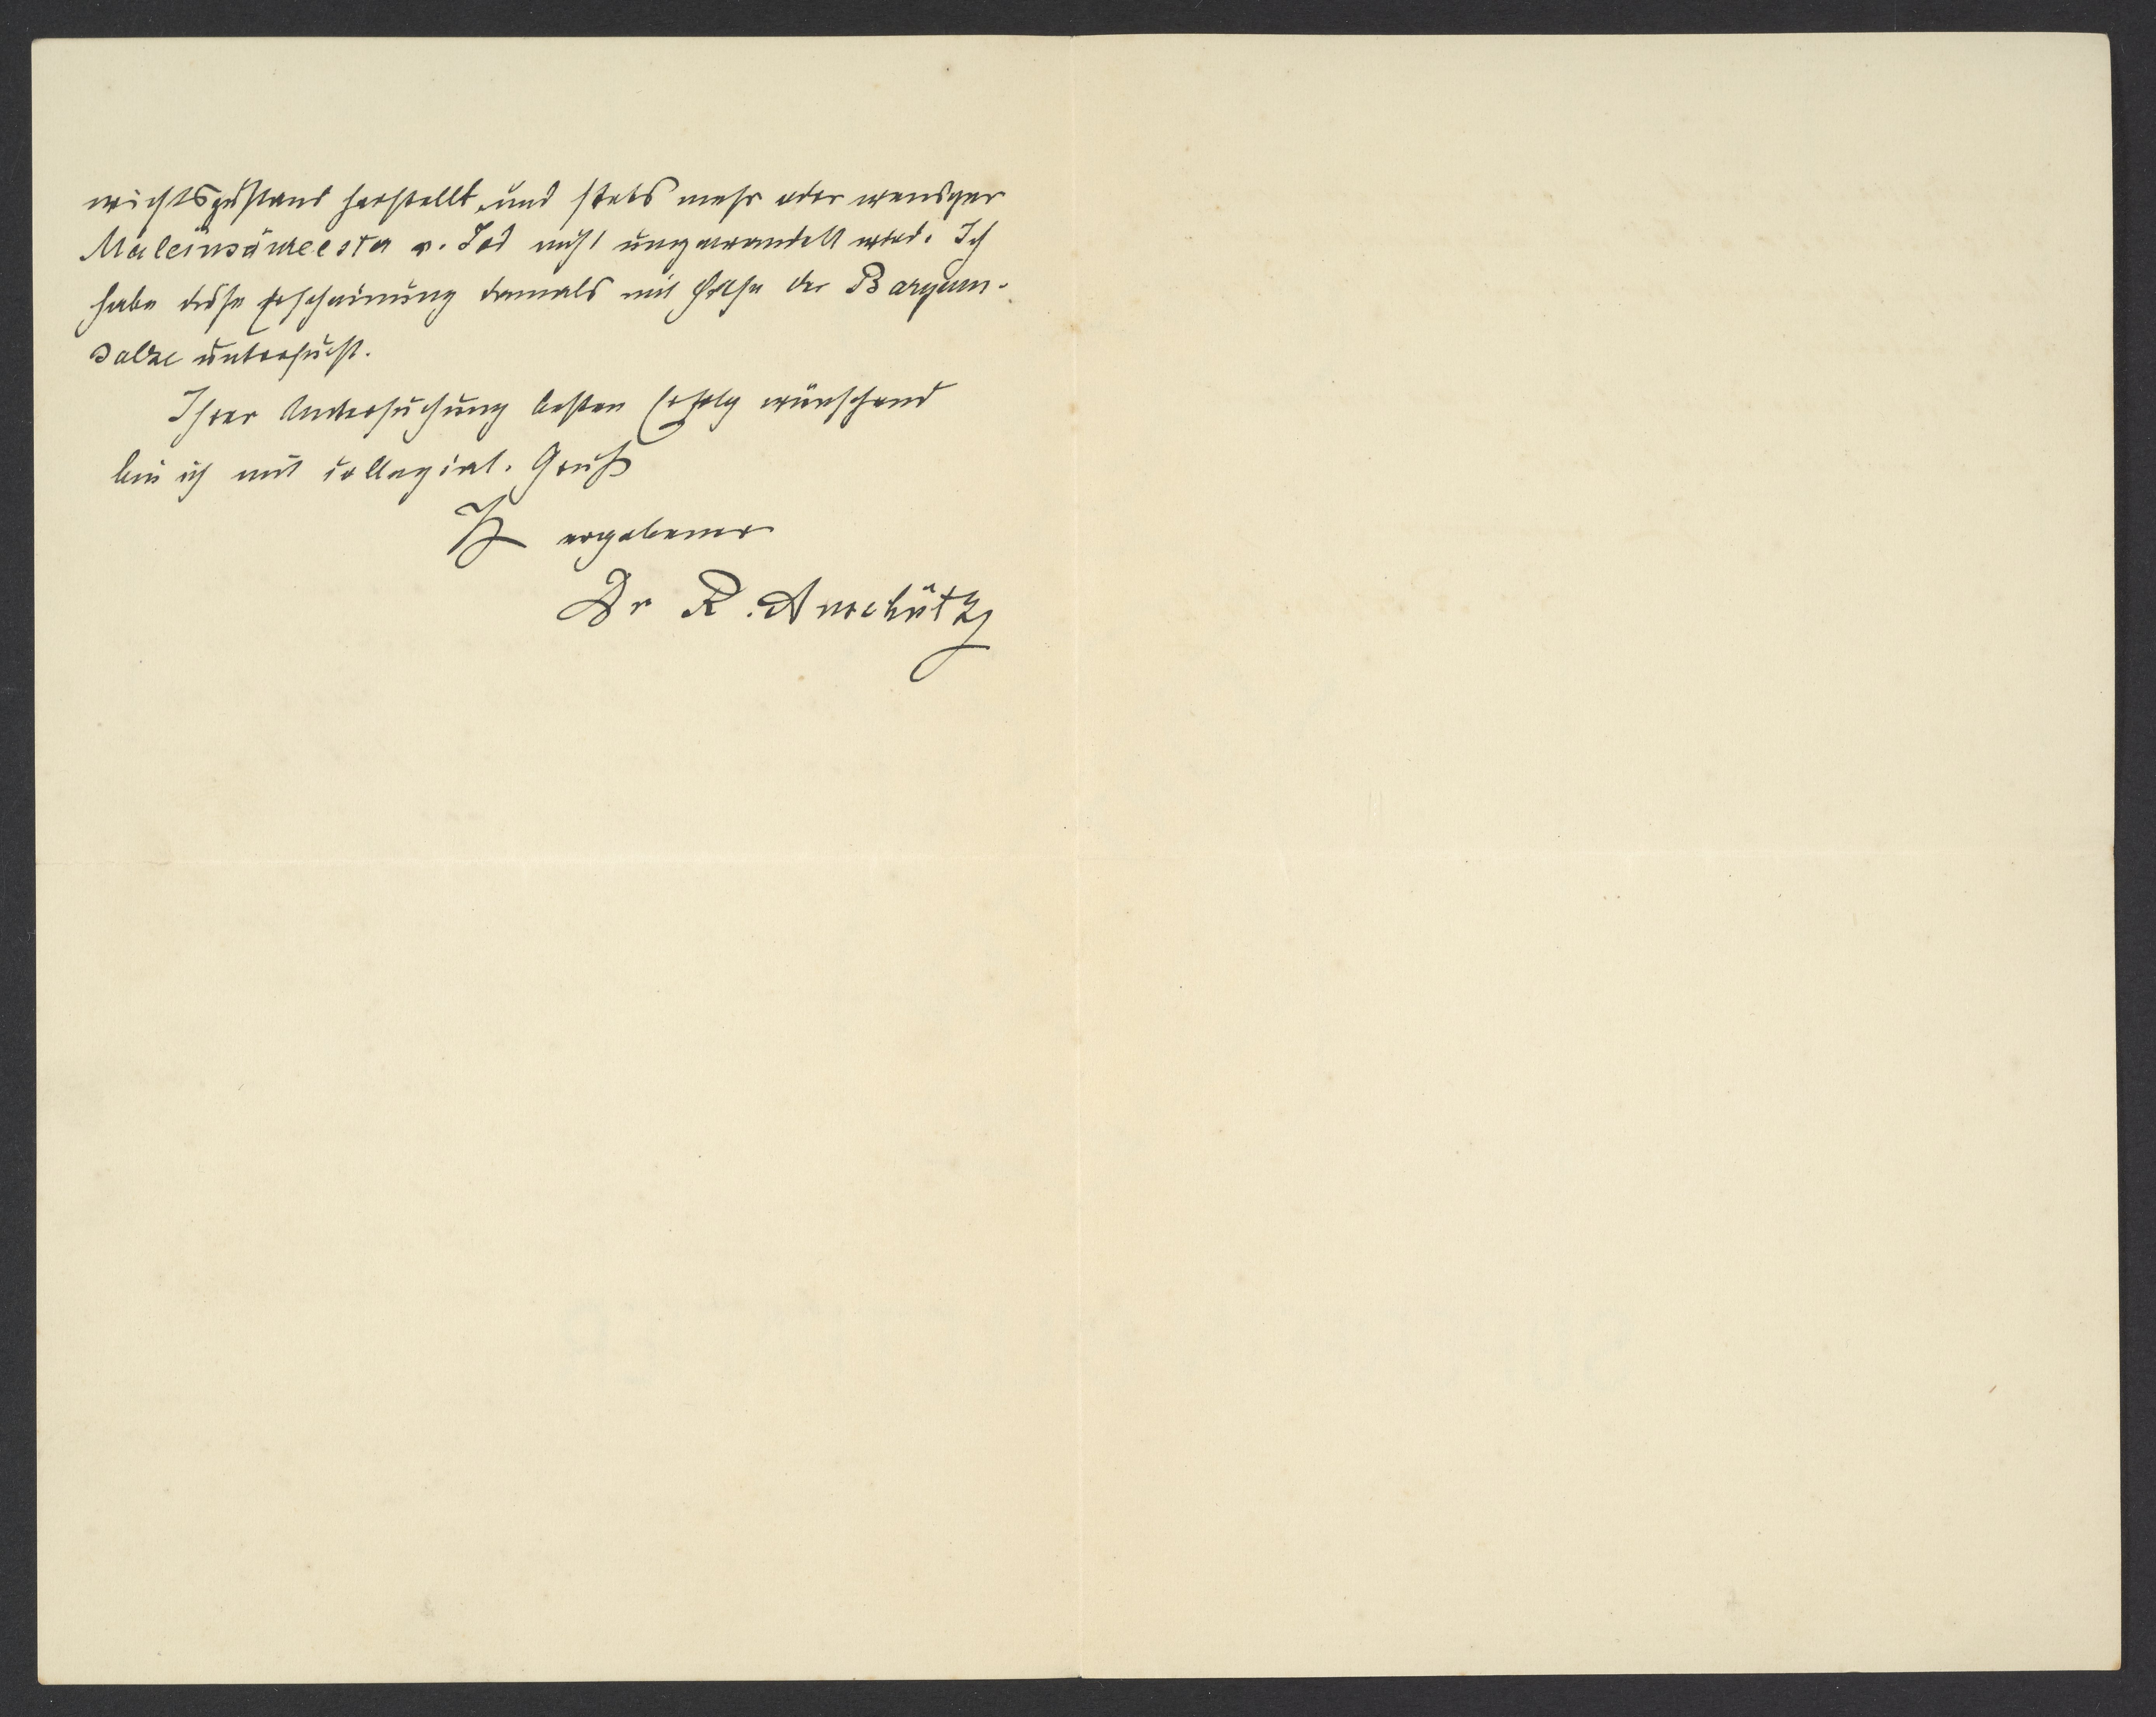 wichtszustand herstellt, und stets mehr oder weniger
Maleinsäureester v. Jod nicht umgewandelt wird. Ich
habe diese Erscheinung damals mit Hülfe der Baryum-
salze untersucht.
Ihrer Untersuchung besten Erfolg wünschend
bin ich mit collegial. Gruß
Ihr ergebener
Dr R. Anschütz